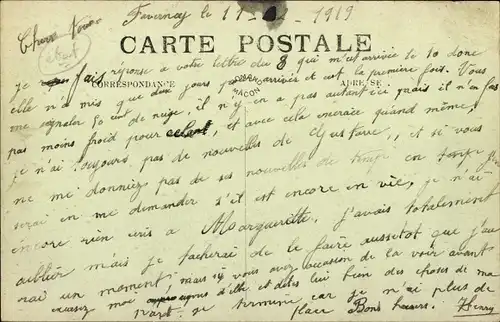 Faverney le 11 1919
Chers Vous
CARTE POSTALE
CORRESPONDANCE ADRESSE
MACON
je fais réponse a votre lettre du 8 qui m'est arrivée le 10 donc
elle n'a mis que deux jours pour arrivée et est la première fois. Vous
me signaler 50 cm de neige il n'y en a pas autant ici mais il n'en fais
pas moins froid pour celant, et avec cela menace quand même,
je n'ai toujours pas de nouvelles de Gustave, et si vous
ne me donniez pas de ses nouvelles de temps en temps je
serai en me demander s'il est encore en vie, je n'ai
encore rien écris a Marguerite, j'avais totalement
oublier mais je tacherai de le faire aussetot que j'au
rai un moment, mais si vous avez occasion de la voir avant
excusez moi auprès d'elle et dites lui bien des choses de ma
part. je termine car je n'ai plus de
place Bons baisers. Henry